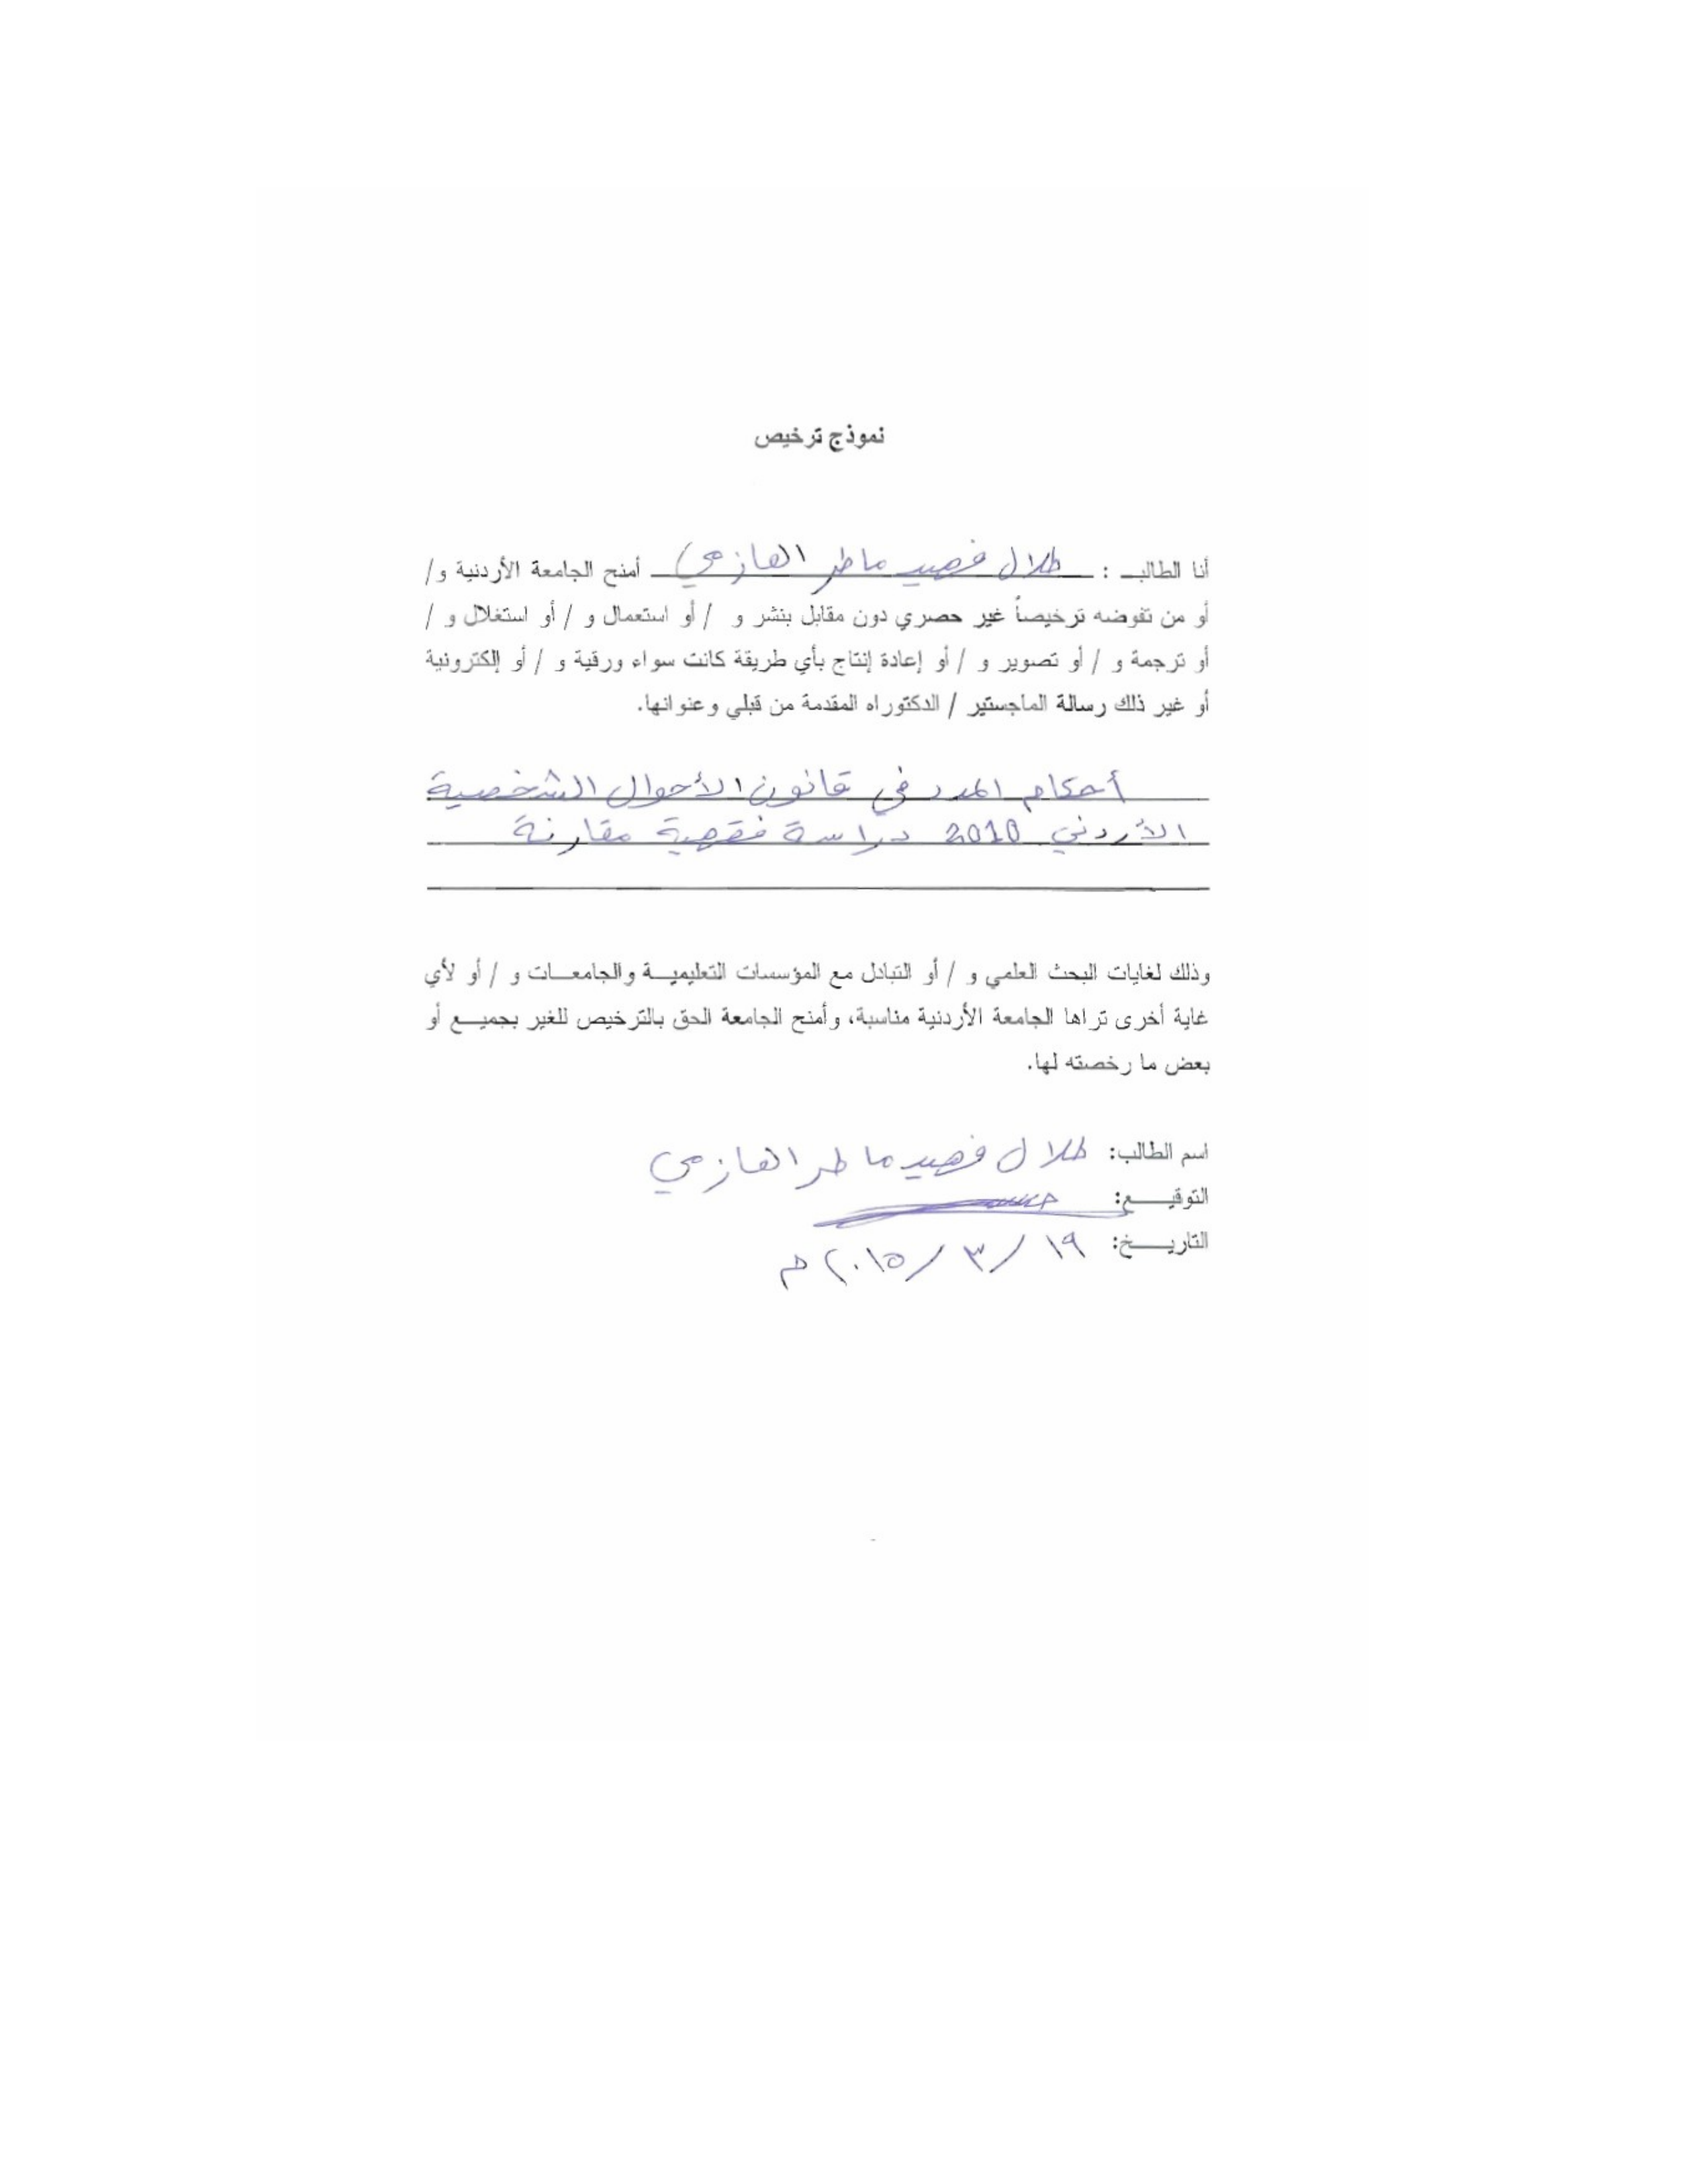 نموذج ترخيص
أنا الطالب : طلال فهيد ماطر العازمي أمنح الجامعة الأردنية و/
أو من تفوضه ترخيصاً غير حصري دون مقابل بنشر و / أو استعمال و / أو استغلال و /
أو ترجمة و / أو تصوير و / أو إعادة إنتاج بأي طريقة كانت سواء ورقية و / أو إلكترونية
أو غير ذلك رسالة الماجستير / الدكتوراه المقدمة من قبلي وعنوانها.
أحكام في قانون الأحوال الشخصية
الأردني 2010 دراسة فقهية مقارنة
وذلك لغايات البحث العلمي و / أو التبادل مع المؤسسات التعليمية والجامعات و / أو لأي
غاية أخرى تراها الجامعة الأردنية مناسبة، وأمنح الجامعة الحق بالترخيص للغير بجميع أو
بعض ما رخصته لها.
اسم الطالب: طلال فهيد ماطر العازمي
التوقيع:
التاريخ: ١٩ / ٣ / ٢٠١٥ م